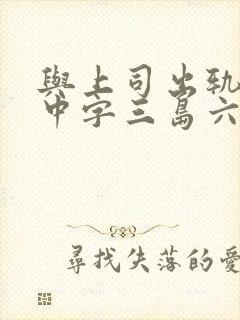 與上司出軌
中字三島六
尋找失落的愛